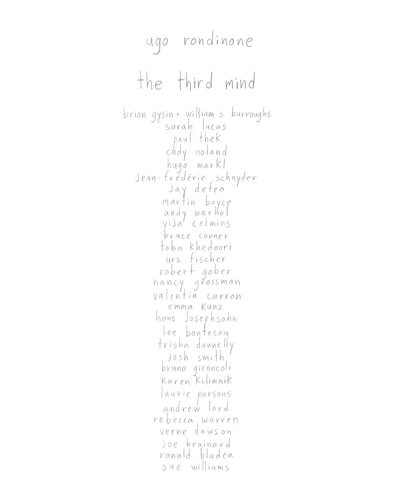 ugo rondinone
the third mind
brion gysin + william s. burroughs
sarah lucas
paul thek
cady noland
hugo markl
jean-frédéric schnyder
jay defeo
martin boyce
andy warhol
vija celmins
bruce conner
toba khedoori
urs fischer
robert gober
nancy grossman
valentin carron
emma kunz
hans josephsohn
lee bontecou
trisha donnelly
josh smith
bruno gironcoli
karen kilimnik
laurie parsons
andrew lord
rebecca warren
verne dawson
joe brainard
ronald bladen
sue williams